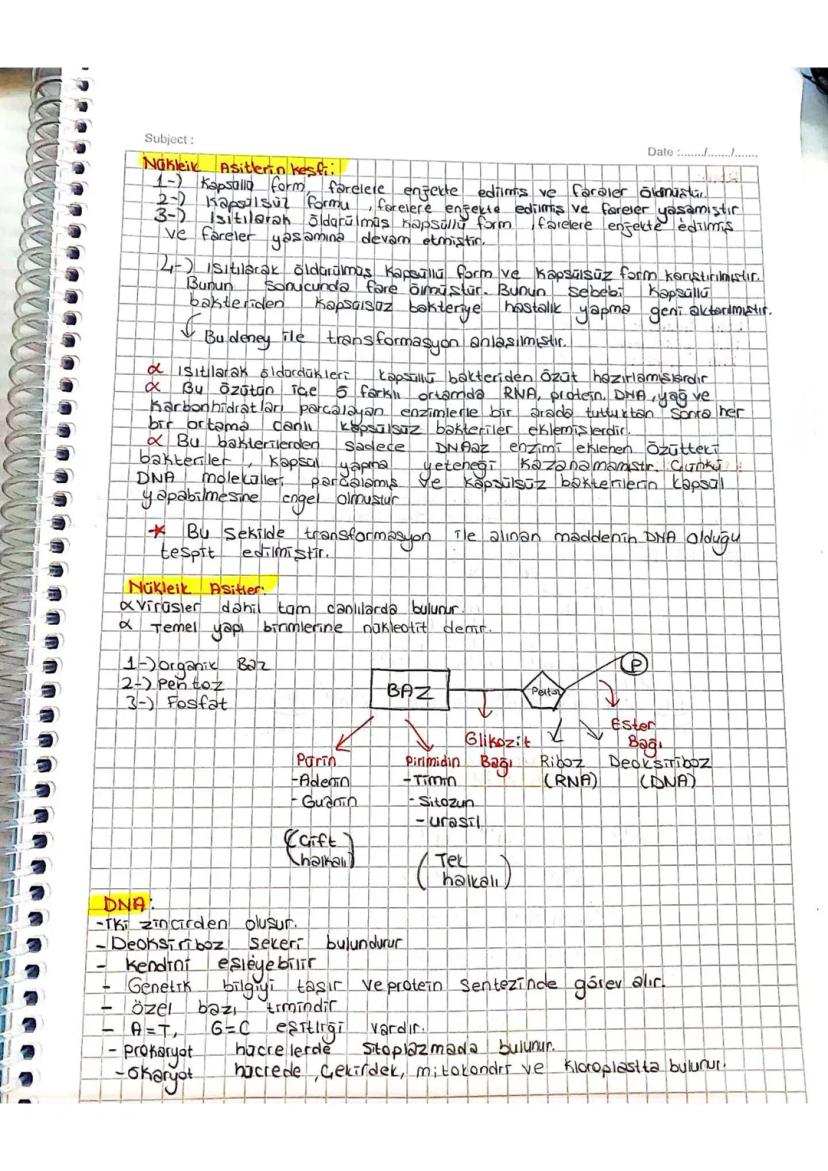 Subject :
Date :......../......../........
Nükleik Asitlerin keşfi:
1-) Kapsüllü form, farelere enjekte edilmiş ve fareler ölmüştür.
2-) Kapsülsüz formu, farelere enjekte edilmiş ve fareler yaşamıştır
3-) Isıtılarak öldürülmüş kapsüllü form, farelere enjekte edilmiş
ve fareler yaşamına devam etmiştir.
4-) ısıtılarak öldürülmüş kapsüllü form ve kapsülsüz form karıştırılmıştır.
Bunun sonucunda fare ölmüştür. Bunun sebebi kapsüllü
bakteriden kapsülsüz bakteriye hastalık yapma geni aktarılmıştır.
Bu deney ile transformasyon anlaşılmıştır.
α ısıtılarak öldürdükleri kapsüllü bakteriden özüt hazırlamışlardır
α Bu özütün içe 5 farklı ortamda RNA, protein, DNA, yağ ve
karbonhidratları parçalayan enzimlerle bir arada tuttuktan sonra her
bir ortama canlı kapsülsüz bakteriler eklemişlerdir.
α Bu bakterilerden sadece DNAaz enzimi eklenen özütteki
bakteriler, kapsül yapma yeteneği kazanamamıştr. Çünkü
DNA molekülleri parçalamış ve kapsülsüz bakterilerin kapsül
yapabilmesine engel olmuştur
* Bu şekilde transformasyon ile alınan maddenin DNA olduğu
tespit edilmiştir.
Nükleik Asitler:
α Virüsler dahil tüm canlılarda bulunur.
α Temel yapı birimlerine nükleotit denir.
1-) Organik Baz
2-) Pentoz
3-) Fosfat
BAZ
Pentoz
P
Glikozit
Bağı
Ester
Bağı
Pürin
-Adenin
-Guanin
(Çift
halkalı)
Pirimidin
-Timin
-Sitozun
-urasil
(Tek
halkalı)
Riboz
(RNA)
Deoksiriboz
(DNA)
DNA:
-İki zincirden oluşur.
-Deoksiriboz şekeri bulundurur
- Kendini eşleyebilir
- Genetik bilgiyi taşır ve protein sentezinde görev alır.
- özel bazı timindir
- A=T, G=C eşitliği vardır.
- prokaryot hücrelerde sitoplazmada bulunur.
-ökaryot hücrede, çekirdek, mitokondri ve kloroplastta bulunur.